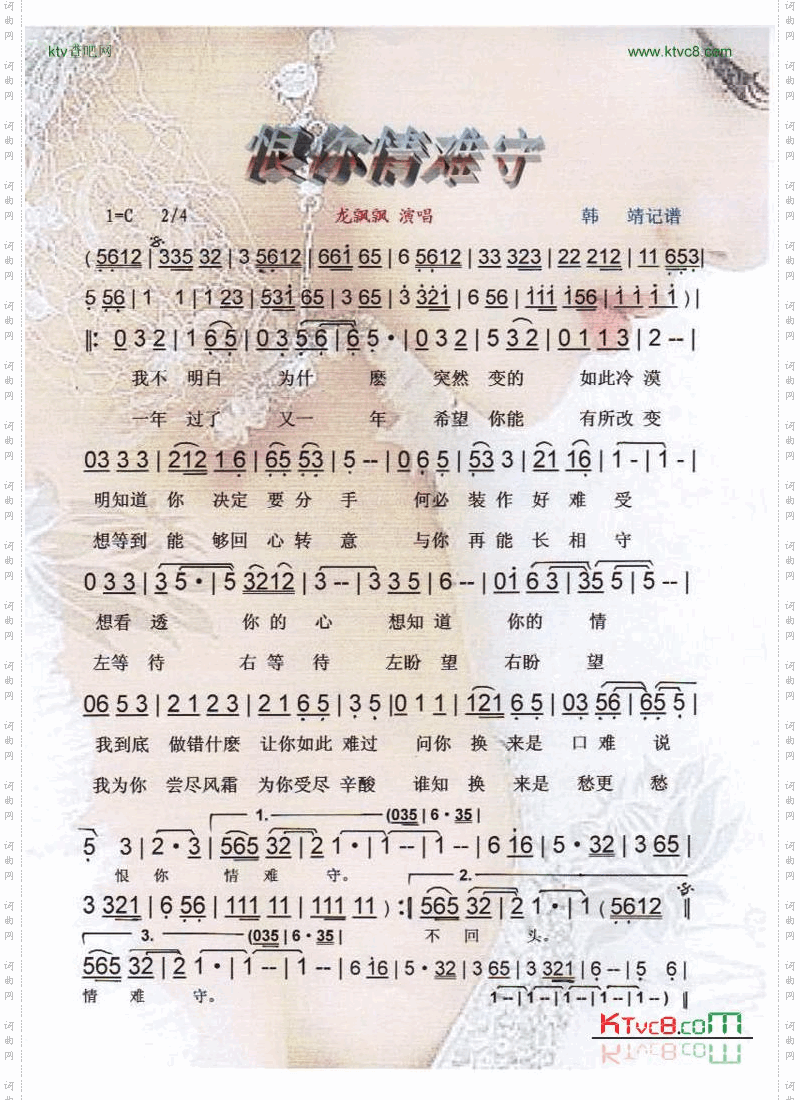 ktv吧网
www.ktvc8.com
恨你情难守
1=C 2/4 龙飘飘 演唱 韩 靖记谱
(5612|335 32|3 5612|661 65|6 5612|33 323|22 212|11 653|
5 56|1 1|1 23|531 65|3 65|3 321|6 56|111 156|1 1 1 1)|
‖: 0 3 2|1 6 5|0 3 5 6|6 5·|0 3 2|5 3 2|0 1 1 3|2 --|
我不 明白 为什 麽 突然 变的 如此冷 漠
一年 过了 又一 年 希望 你能 有所改 变
03 3 3|212 1 6|65 53|5 --|0 6 5|53 3|21 16|1 -|1 -|
明知道 你 决定 要 分 手 何必 装 作 好 难 受
想等到 能 够回 心 转 意 与你 再 能 长 相 守
0 3 3|3 5·|5 3212|3 --|3 3 5|6 --|01 6 3|35 5|5 --|
想看 透 你 的 心 想知 道 你的 情
左等 待 右 等 待 左盼 望 右盼 望
06 5 3|2 1 2 3|2 1 6 5|3 5|0 1 1|121 6 5|03 56|65 5|
我到底 做错什麽 让你如此 难过 问你 换 来是 口 难 说
我为你 尝尽风霜 为你受尽 辛酸 谁知 换 来是 愁更 愁
1. (035|6·35|
5 3|2·3|565 32|2 1·|1 --|1 --|6 16|5·32|3 65|
恨 你 情 难 守。
2.
3 321|6 56|111 11|111 11):‖565 32|2 1·|1 (5612‖
3. (035|6·35| 不 回 头。
565 32|2 1·|1 --|1 --|6 16|5·32|3 65|3 321|6 --|5 6|
情 难 守。 1 --|1 --|1 --|1 --)‖
KTvc8.com